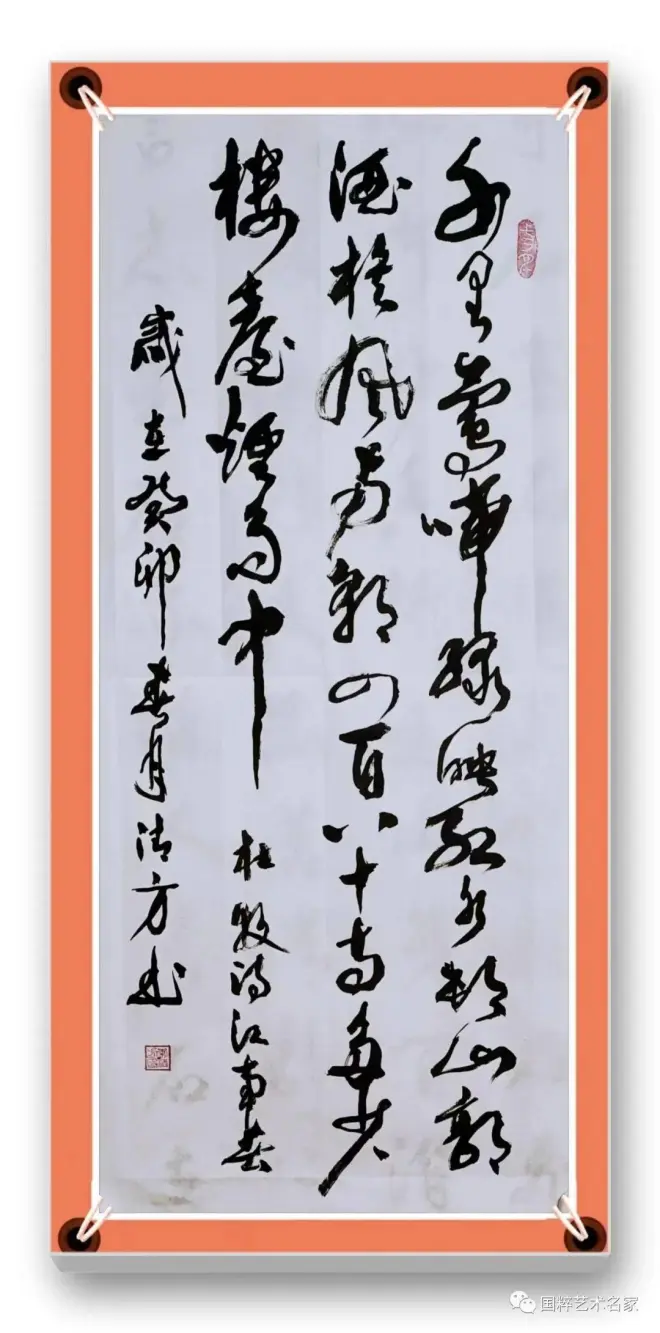 千里莺啼绿映红水村山郭
酒旗风南朝四百八十寺多少
楼臺煙雨中
杜牧诗江南春
岁在癸卯春月清方书
国粹艺术名家